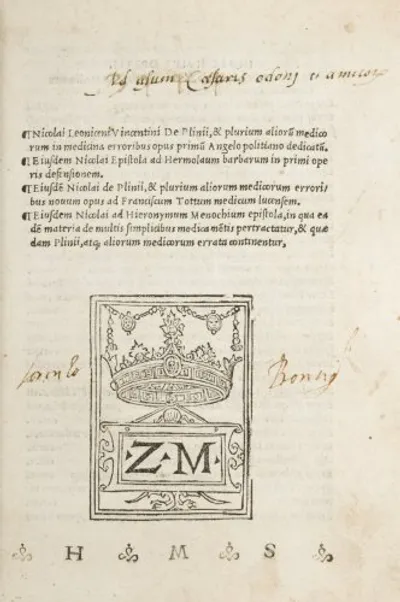 Ad usum Cæsaris odonj et amicor
¶Nicolai Leoniceni Vincentini De Plinii, & plurium alioru̅ medico
rum in medicina erroribus opus primu̅ Angelo politiano dedicatu̅.
¶Eiusdem Nicolai Epistola ad Hermolaum barbarum in primi ope
ris defensionem.
¶Eiusde̅ Nicolai de Plinii, & plurium aliorum medicorum errori
bus nouum opus ad Franciscum Tottum medicum lucensem.
¶Eiusdem Nicolai ad Hieronymum Menochium epistola, in qua ea
de̅ materia de multis simplicibus medica me̅tis pertractatur, & quæ
dam Plinii, atq; aliorum medicorum errata continentur,
·Z·M·
H M S